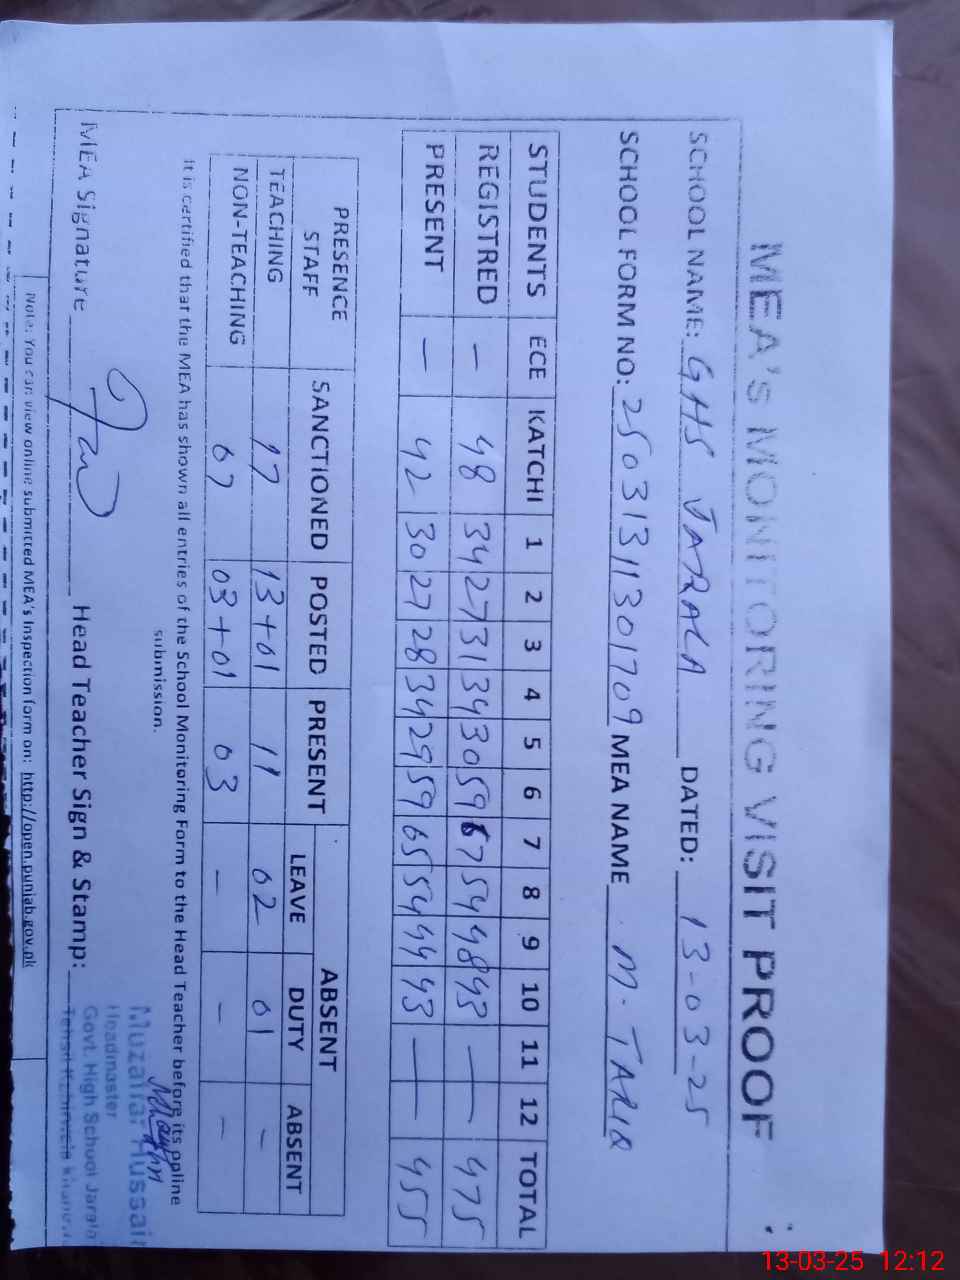 MEA's MONITORING VISIT PROOF
SCHOOL NAME: GHS JARALA DATED: 13-03-25
SCHOOL FORM NO: 25031311301709 MEA NAME M. TARIQ
STUDENTS ECE KATCHI 1 2 3 4 5 6 7 8 9 10 11 12 TOTAL
REGISTRED - 48 34 27 31 34 30 59 67 54 48 43 — 475
PRESENT - 42 30 27 28 34 29 59 65 54 44 43 — 455
PRESENCE STAFF SANCTIONED POSTED PRESENT ABSENT
LEAVE DUTY ABSENT
TEACHING 17 13+01 11 02 01 -
NON-TEACHING 07 03+01 03 - - -
It is certified that the MEA has shown all entries of the School Monitoring Form to the Head Teacher before its online
submission.
MEA Signature Head Teacher Sign & Stamp:
Muzaffar Hussain
Headmaster
Govt. High School Jarala
Note: You can view online submitted MEA's Inspection form on: http://open.punjab.gov.pk
13-03-25 12:12